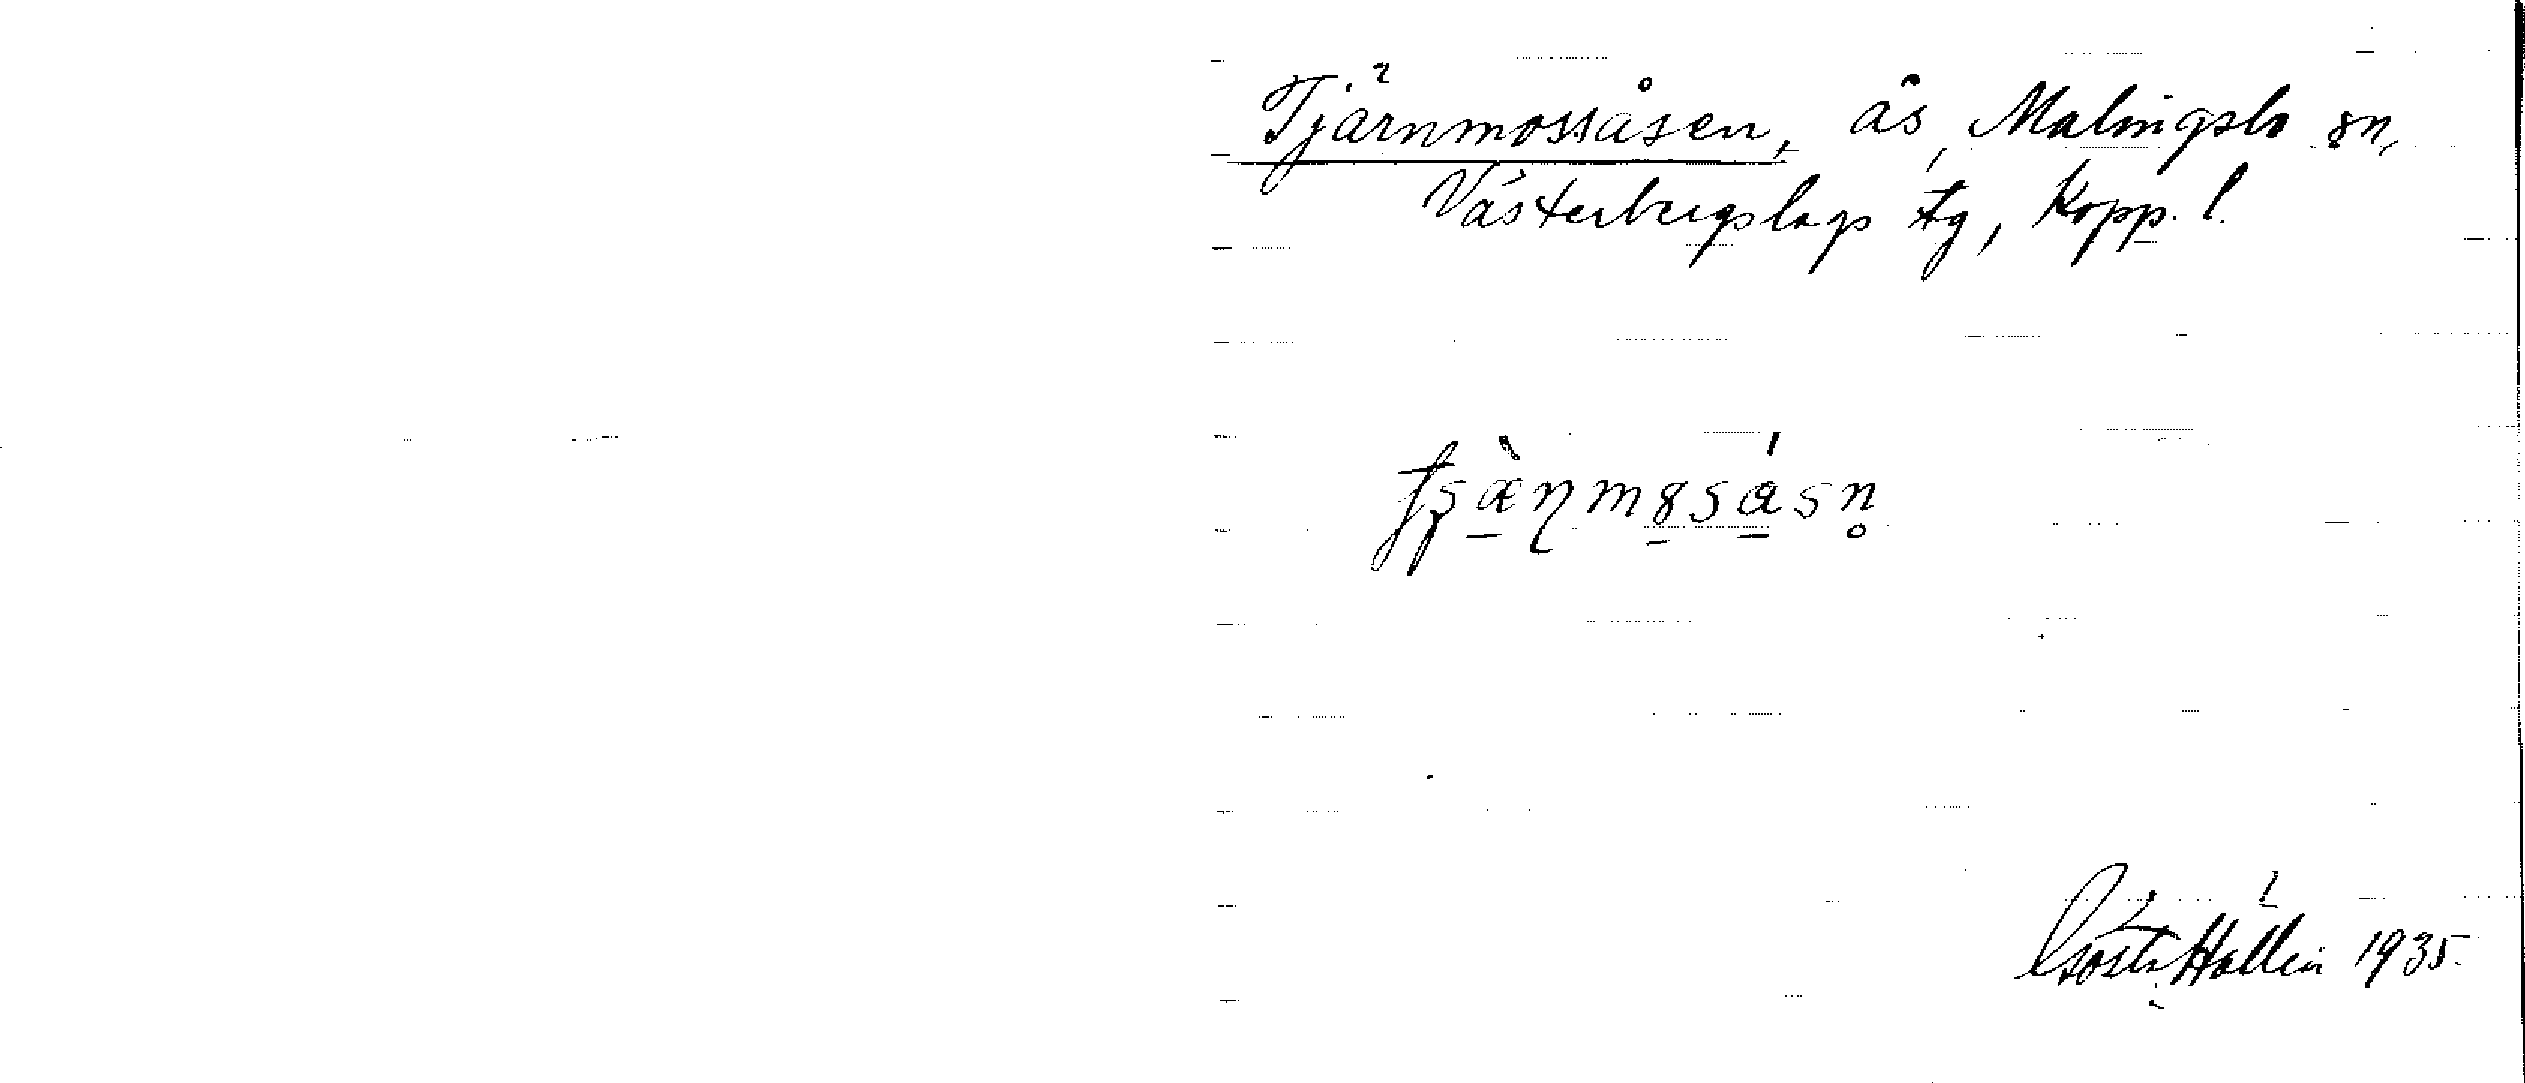 Tjärnmossåsen, ås, Malingsbo sn,
Västerbergslags tg, Kopp. l.
Gösta Hallén 1935.